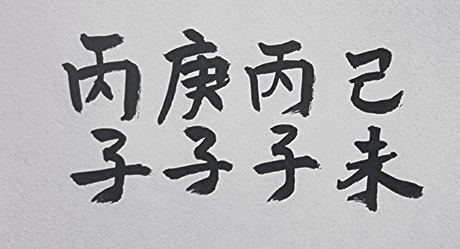 丙庚丙己
子子子未